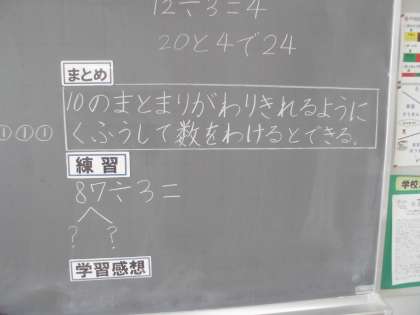 12÷3=4
20と4で24
まとめ
10のまとまりがわりきれるように
くふうして数をわけるとできる。
①①①
練習
87÷3=
? ?
学習感想
学校